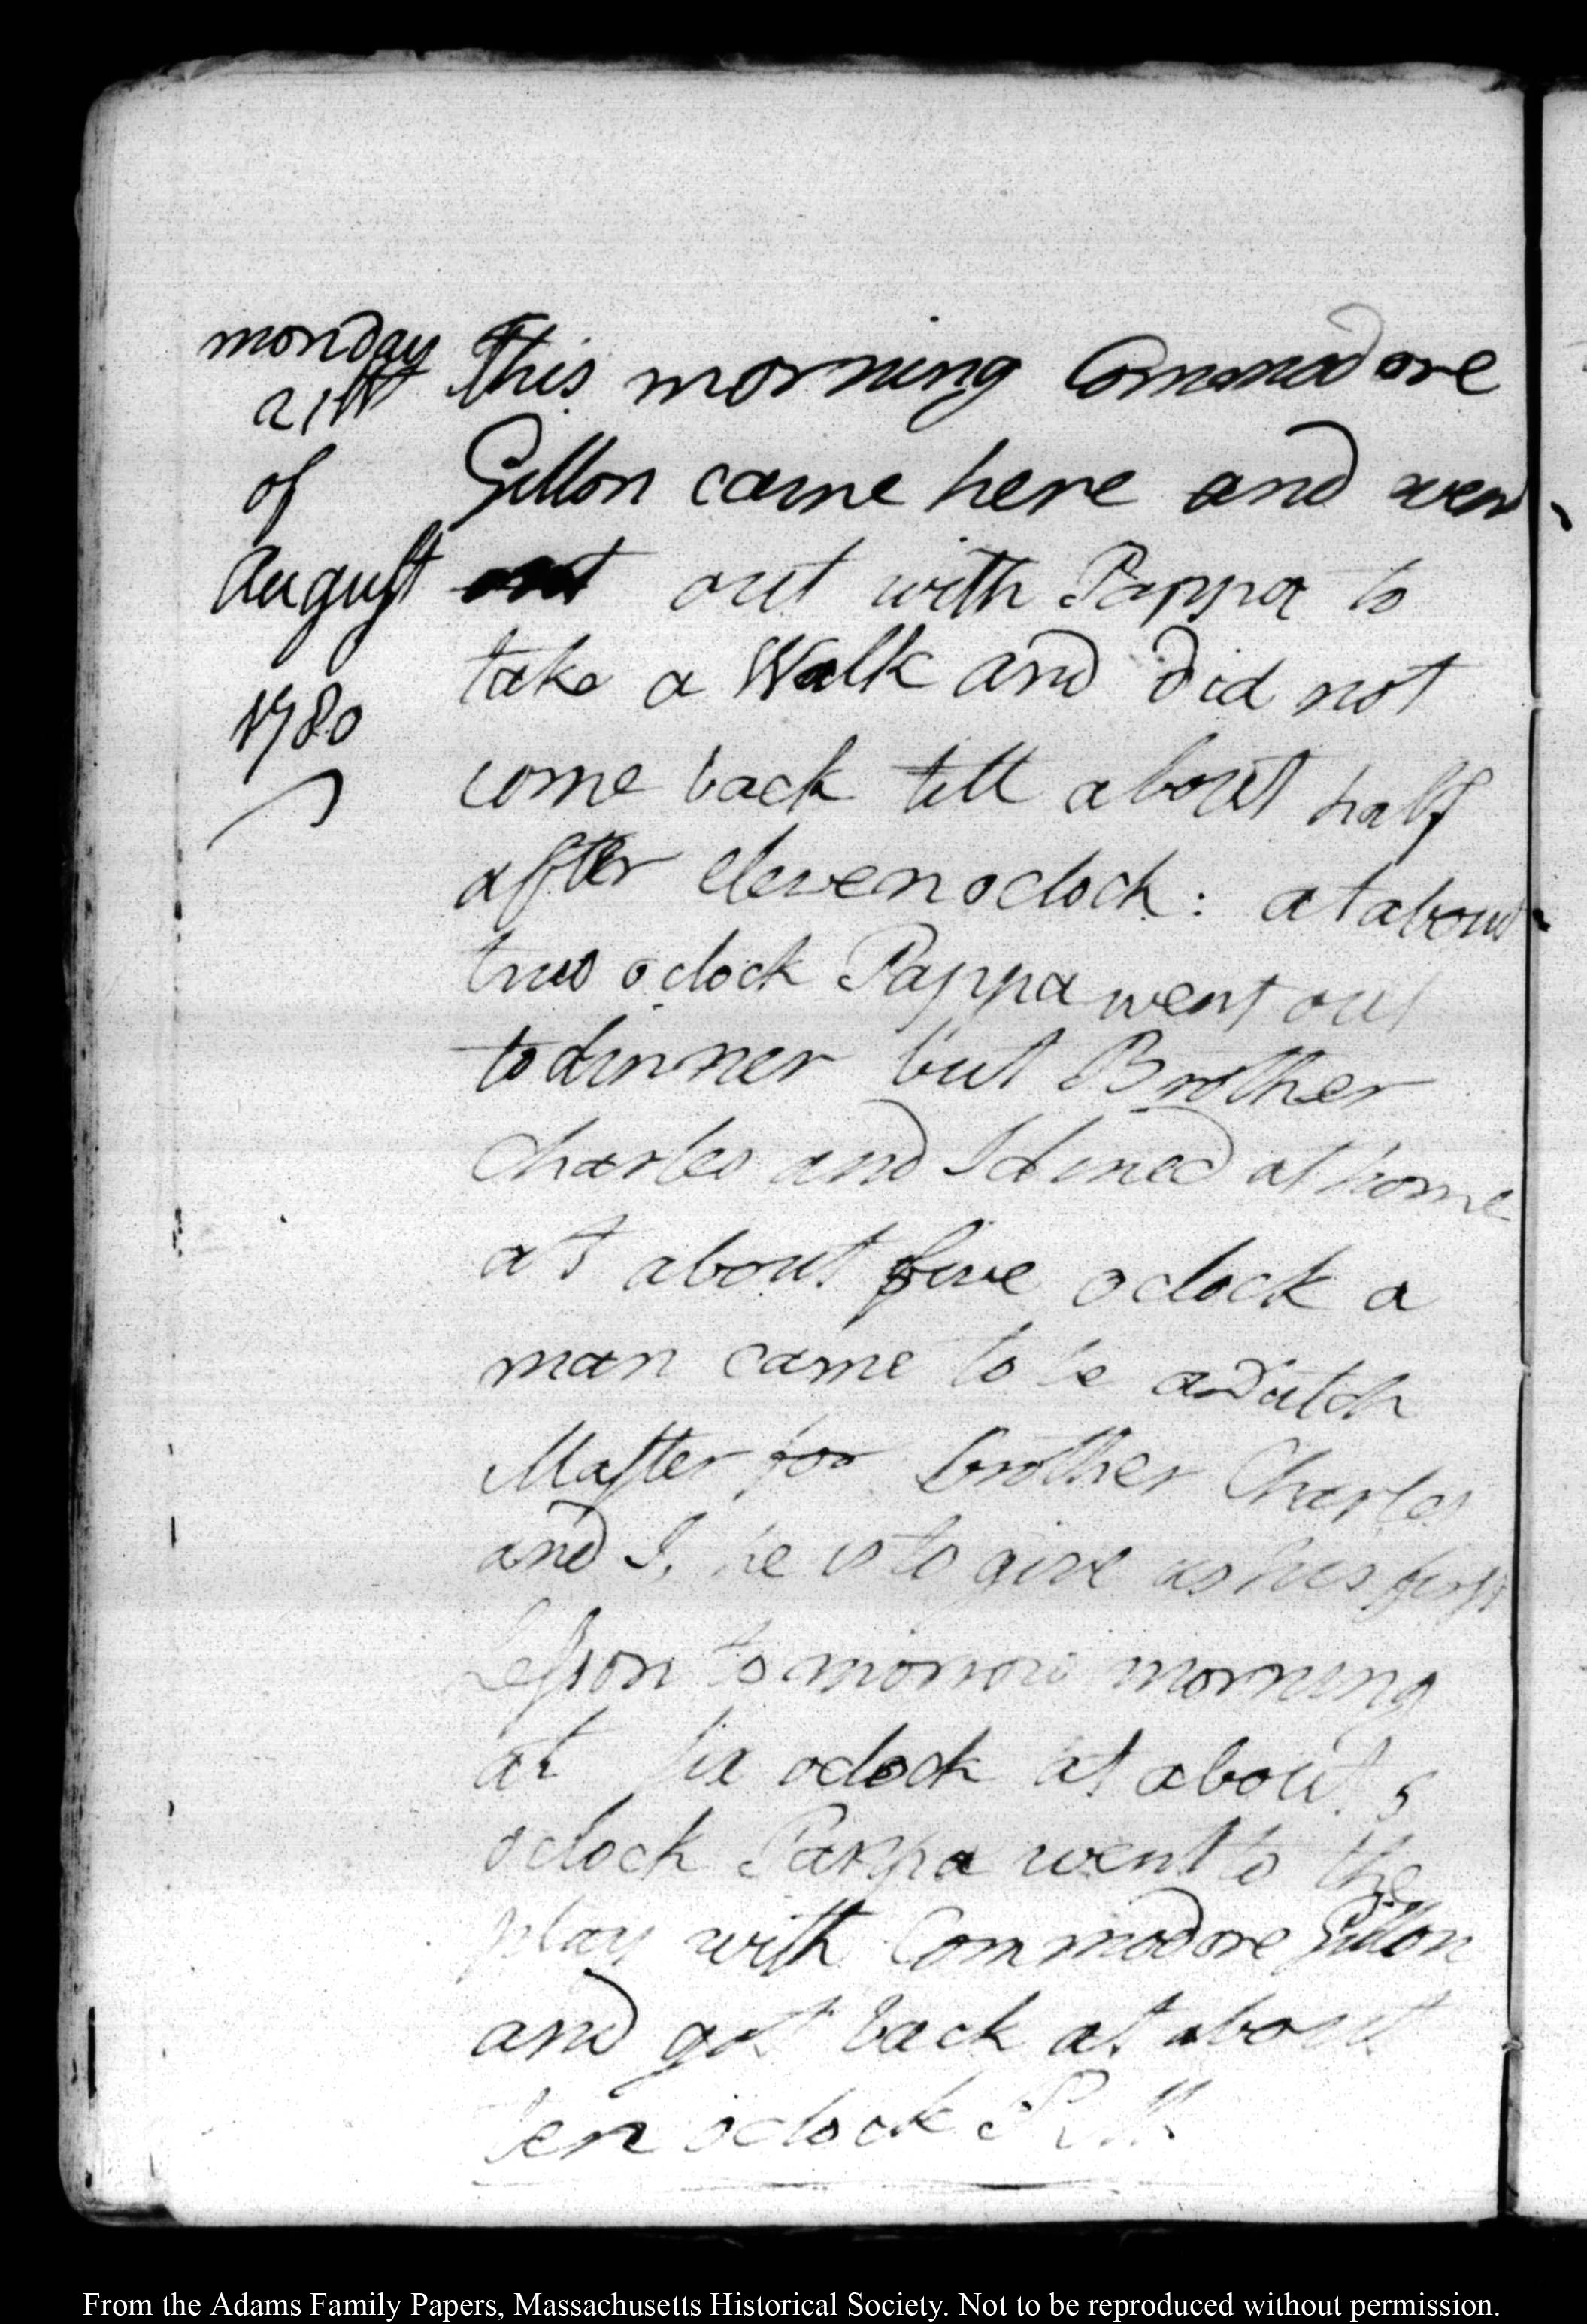 monday
21st
of
August
1780
This morning Commodore
Gillon came here and went
out out with Pappa to
take a Walk and did not
come back till about half
after eleven oclock: at about
two oclock Pappa went out
to dinner but Brother
Charles and I dined at home
at about five oclock a
man came to be a Dutch
Master for brother Charles
and I, he is to give us his first
Lesson to morrow morning
at six oclock at about 5
oclock Pappa went to the
play with Commodore Gillon
and got back at about
ten oclock P.M.
From the Adams Family Papers, Massachusetts Historical Society. Not to be reproduced without permission.